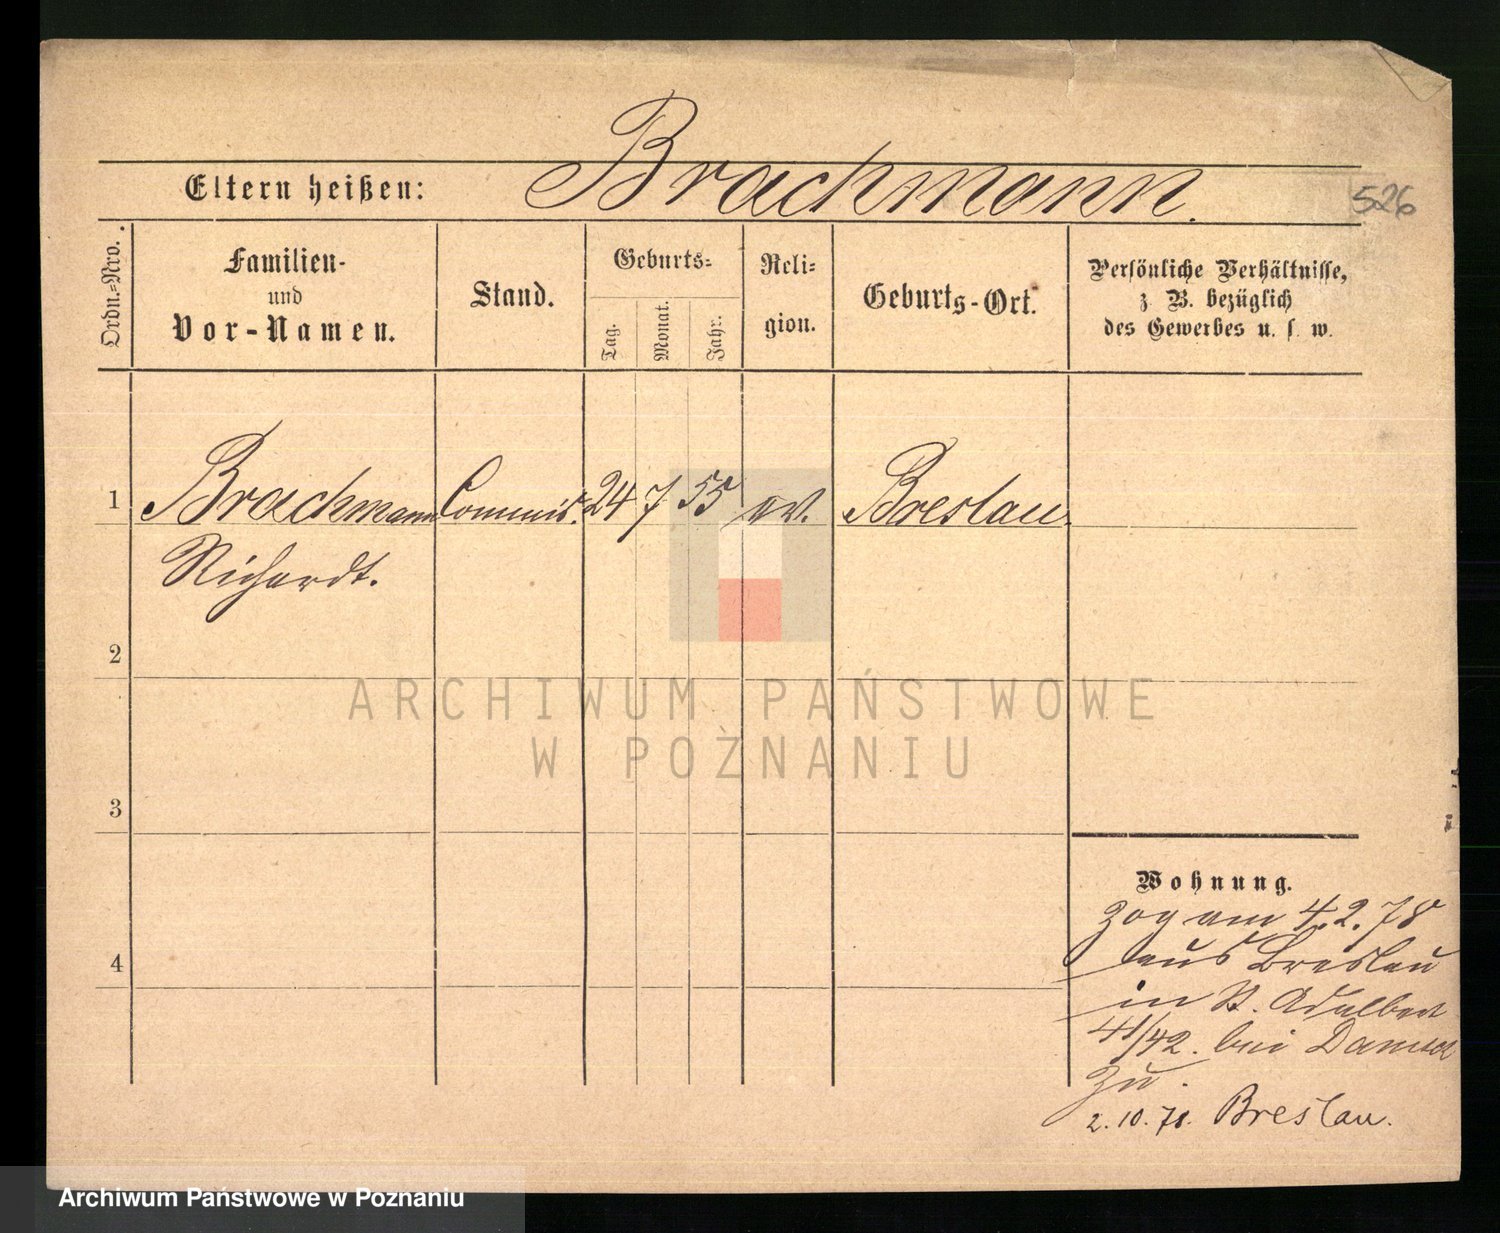 Brachmann.
Eltern heißen:
526
Ordn.=Nro.
Familien-
und
Vor-Namen.
Stand.
Geburts=
Tag.
Monat.
Jahr.
Reli=
gion.
Geburts-Ort.
Persönliche Verhältnisse,
z. B. bezüglich
des Gewerbes u. s. w.
1 Brachmann Commis. 24 7 55 ev. Breslau.
Richardt.
2
ARCHIWUM PAŃSTWOWE
W POZNANIU
3
Wohnung.
Zog am 4.2.78
aus Breslau
4
in St. Adalbert
41/42. bei
zu.
2.10.78. Breslau.
Archiwum Państwowe w Poznaniu